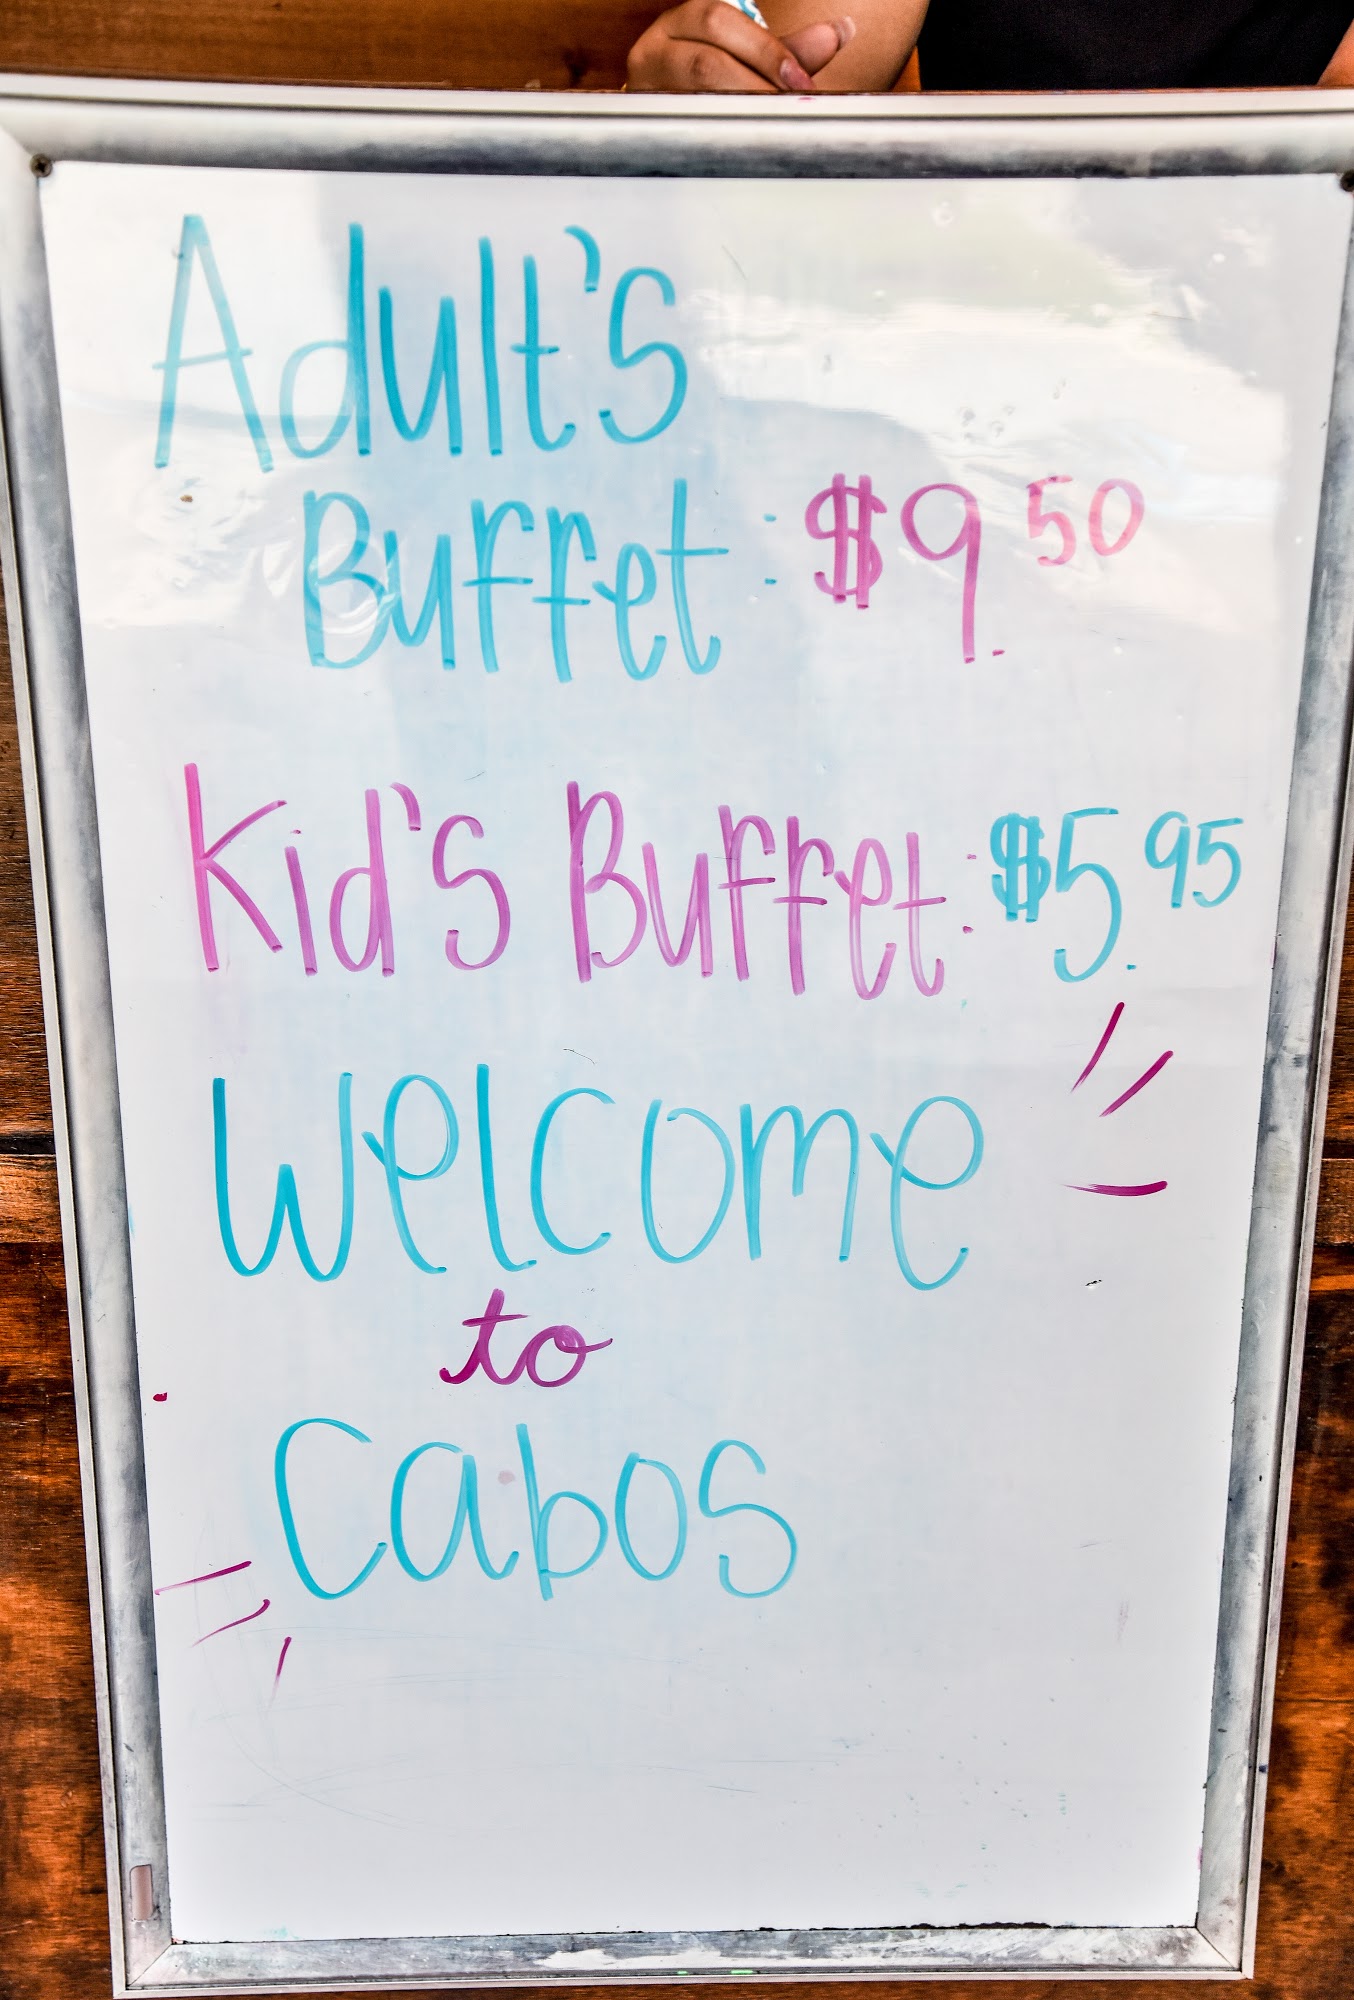 Adult's
Buffet: $9.50
Kid's Buffet: $5.95
Welcome
to
Cabos